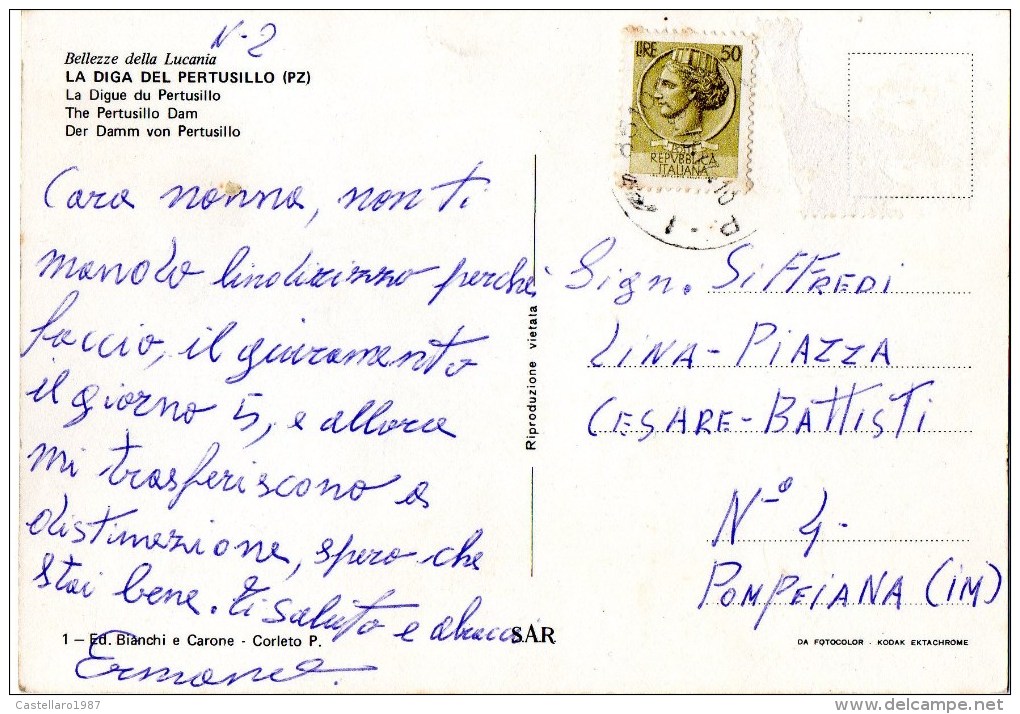 N-2
Bellezze della Lucania
LA DIGA DEL PERTUSILLO (PZ)
La Digue du Pertusillo
The Pertusillo Dam
Der Damm von Pertusillo
LIRE 50
POSTE
REPVBBLICA
ITALIANA
Cara nonna, non ti
mando lindirizzo perché
faccio, il giuramento
il giorno 5, e allora
mi trasferiscono a
distinazione, spero che
stai bene. Ti saluto e abracci
Ermanno.
1 – Ed. Bianchi e Carone - Corleto P.
Riproduzione vietata
SAR
Sign. SIFFREDI
LINA - PIAZZA
CESARE - BATTISTI
N-º 4-
POMPEIANA (IM)
DA FOTOCOLOR - KODAK EKTACHROME
Castellaro1987
delcampe.net